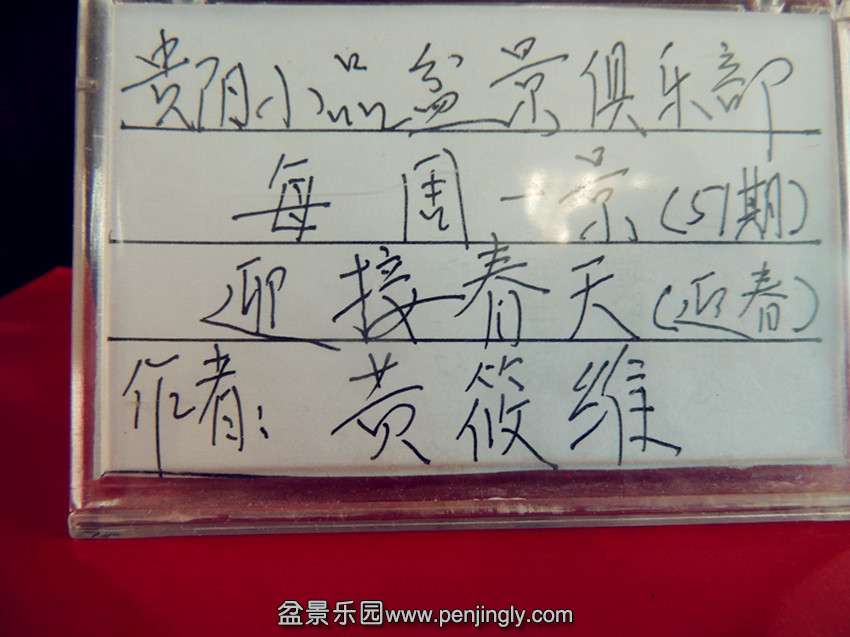 贵阴小品盆景俱乐部
每周一景(51期)
迎接春天(迎春)
作者:黄筱维
盆景乐园www.penjingly.com